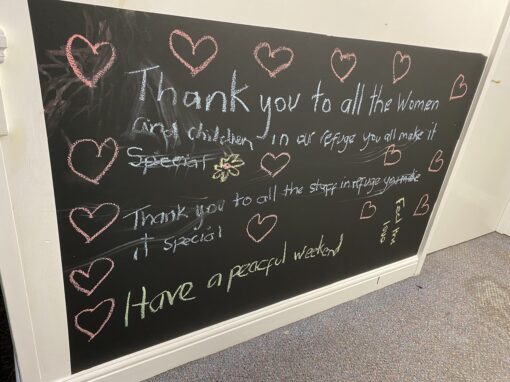 Thank you to all the Women
and children in our refuge you all make it
Special
Thank you to all the staff in refuge you make
it special
Have a peacful weekend
Feel the
love